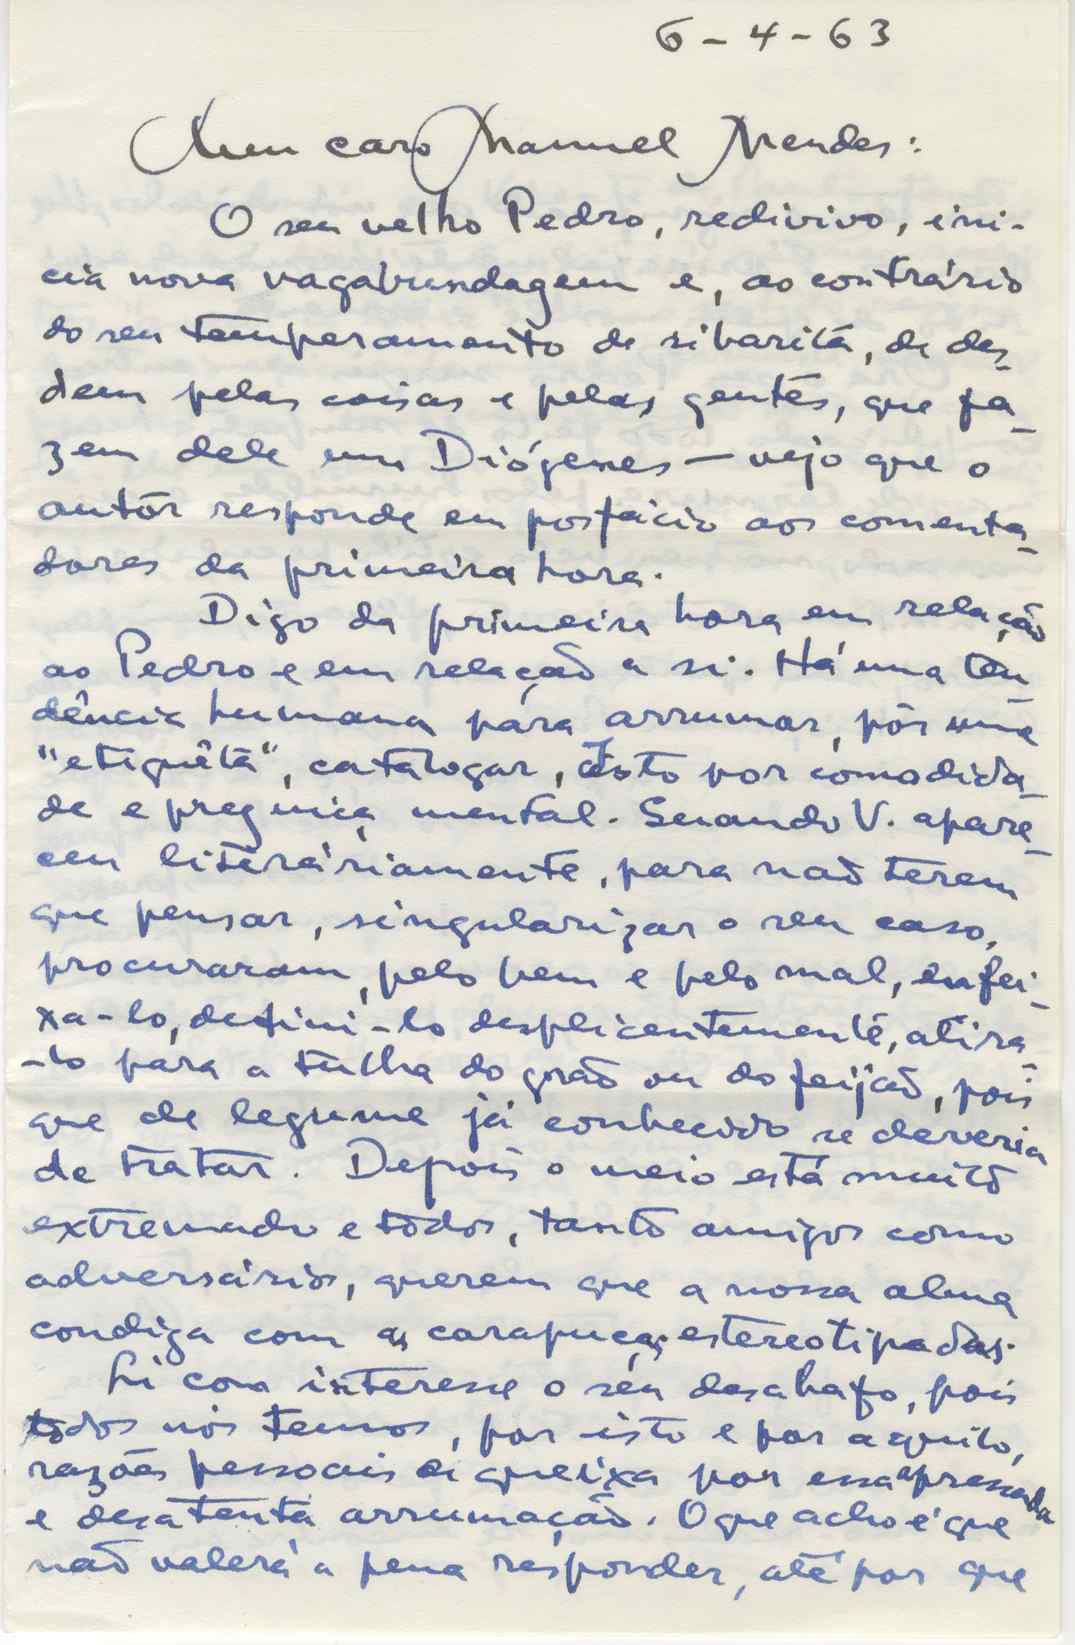 6-4-63
Meu caro Manuel Mendes:
O seu velho Pedro, redivivo, ini-
cia nova vagabundagem e, ao contrário
do seu temperamento de sibarita, de des-
dem pelas coisas e pelas gentes, que fa-
zem dele um Diógenes — vejo que o
autor responde em posfácio aos comenta-
dores da primeira hora.
Digo da primeira hora em relação
ao Pedro e em relação a si. Há uma ten-
dência humana pára arrumar, pôr uma
"etiquêta", catalogar, isto por comodida-
de e preguiça mental. Quando V. apare-
ceu literáriamente, para não terem
que pensar, singularizar o seu caso,
procuraram, pelo bem e pelo mal, enfei-
xa-lo, defini-lo desplicentemente, atira-
-lo pára a tulha do grão ou do feijão, pois
que de legume já conhecido se deveria
de tratar. Depois o meio está muito
extremado e todos, tanto amigos como
adversários, querem que a nossa alma
condiga com as carapuças estereotipadas.
Li com interesse o seu desabafo, pois
todos nós temos, por isto e por aquilo,
razões pessoais de queixa por essa apressada
e desatenta arrumação. O que acho é que
não valerá a pena responder, até por que